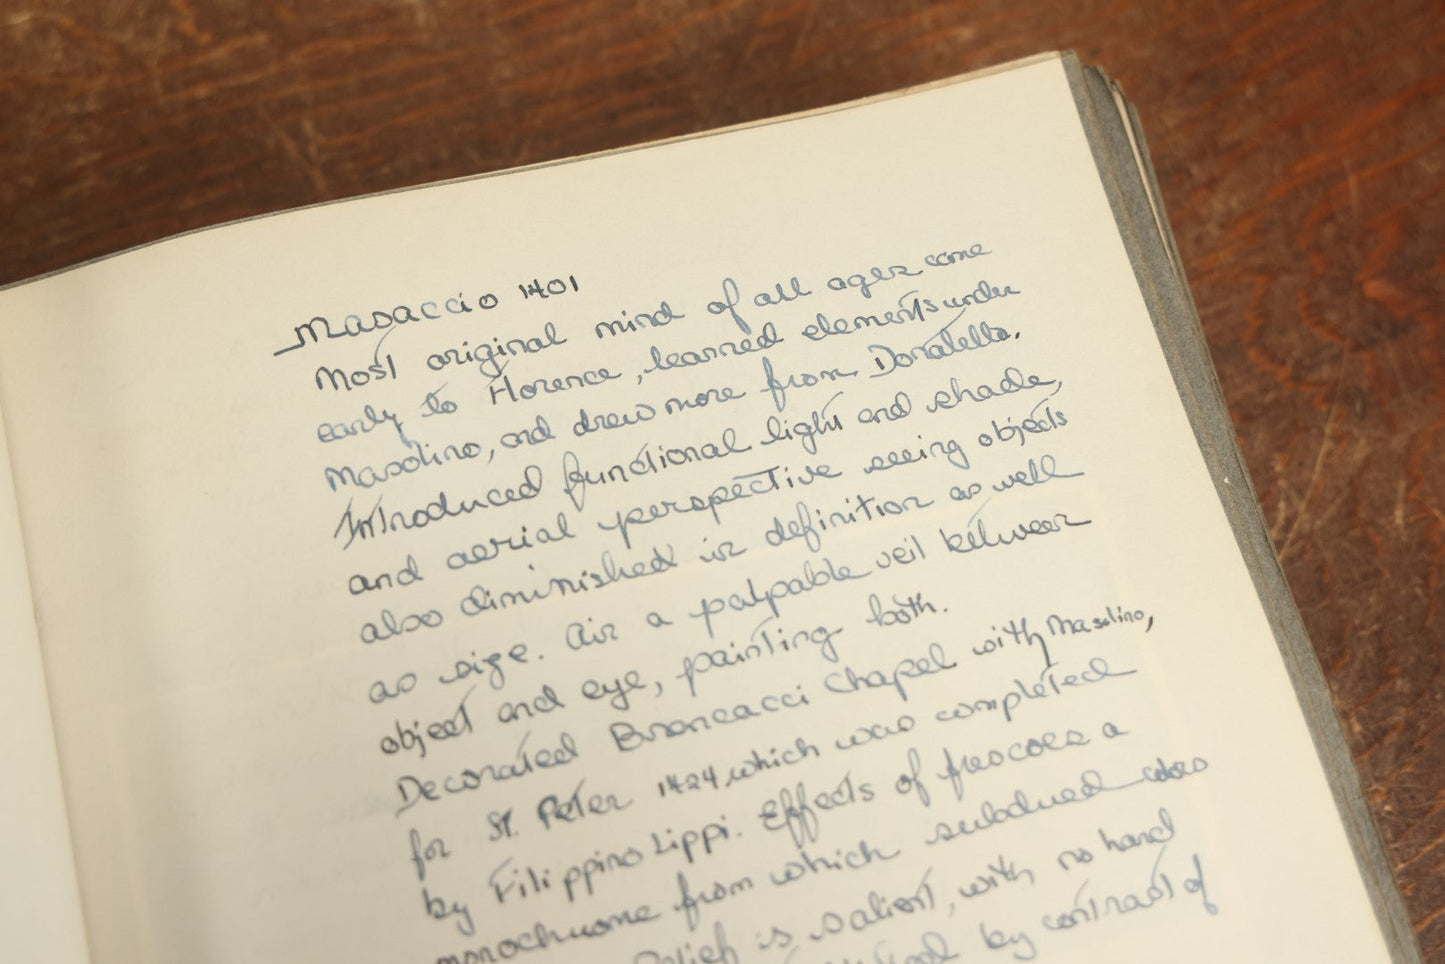 Masaccio 1401
Most original mind of all ages come
early to Florence, learned elements under
Masolino, and drew more from Donatello.
Introduced functional light and shade,
and aerial perspective seeing objects
also diminished in definition as well
as size. Air a palpable veil between
object and eye, painting both.
Decorated Brancacci Chapel with Masolino,
for St. Peter 1424, which was completed
by Filippino Lippi. Effects of frescoes a
monochrome from which subdued colors
Relief is salient, with no hard
by contrast of